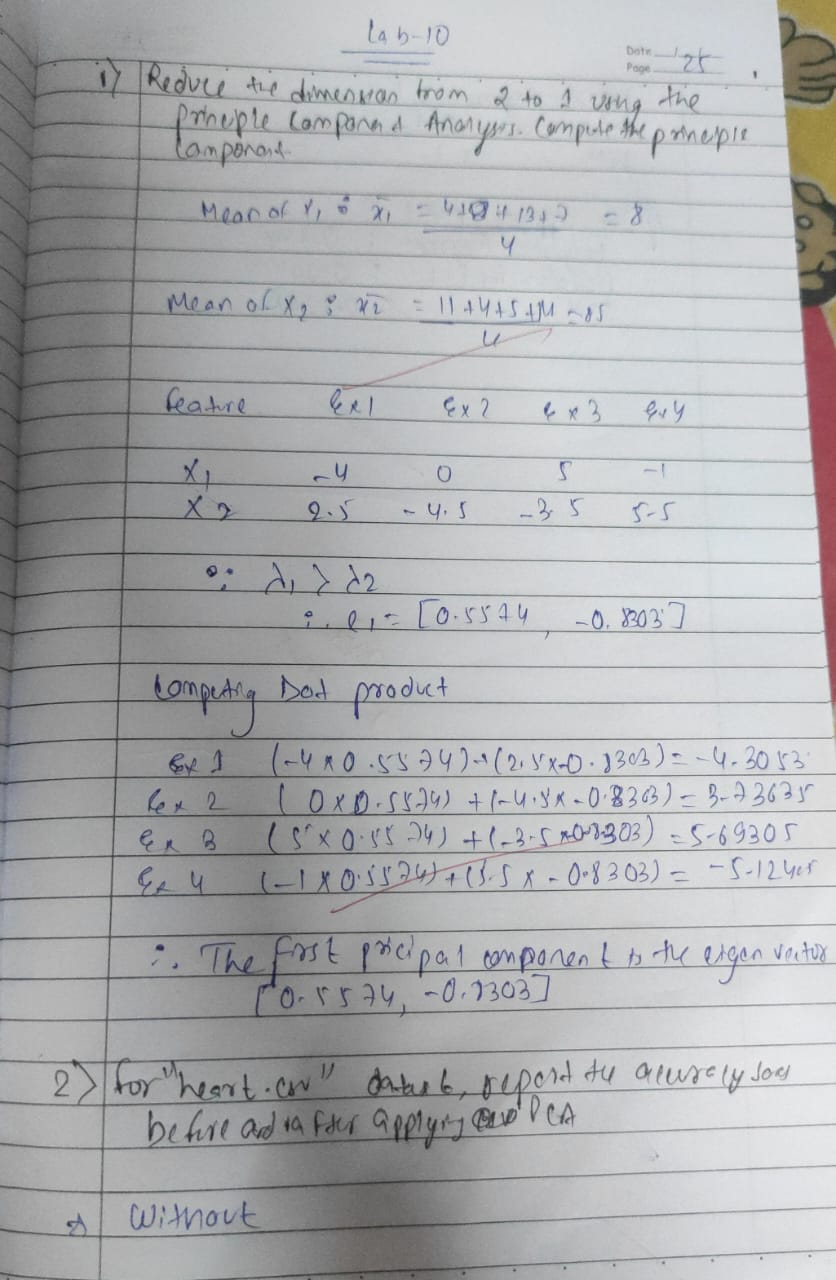 Lab-10
Date
Page 25
1) Reduce the dimension from 2 to 1 using the
principle Component Analysis. Compute the principle
Component.
Mean of X1 : x̄1 = 4+8+13+7 = 8
4
Mean of X2 : x̄2 = 11+4+5+14 = 85
4
feature Ex1 Ex2 Ex3 Ex4
X1 -4 0 5 -1
X2 2.5 -4.5 -3.5 5.5
∵ λ1 > λ2
∴ e1 = [0.5574, -0.8303]
Computing Dot product
Ex 1 (-4 x 0.5574)+(2.5x-0.8303) = -4.3053
Ex 2 (0x0.5574) + (-4.5x-0.8303) = 3.73635
Ex 3 (5 x 0.5574) + (-3.5 x-0.8303) = 5.69305
Ex 4 (-1 x 0.5574) + (5.5 x -0.8303) =
∴ The first pricipal component is the eigen vector
[0.5574, -0.8303]
2) for "heart.csv" report the
before and after applying PCA
Without